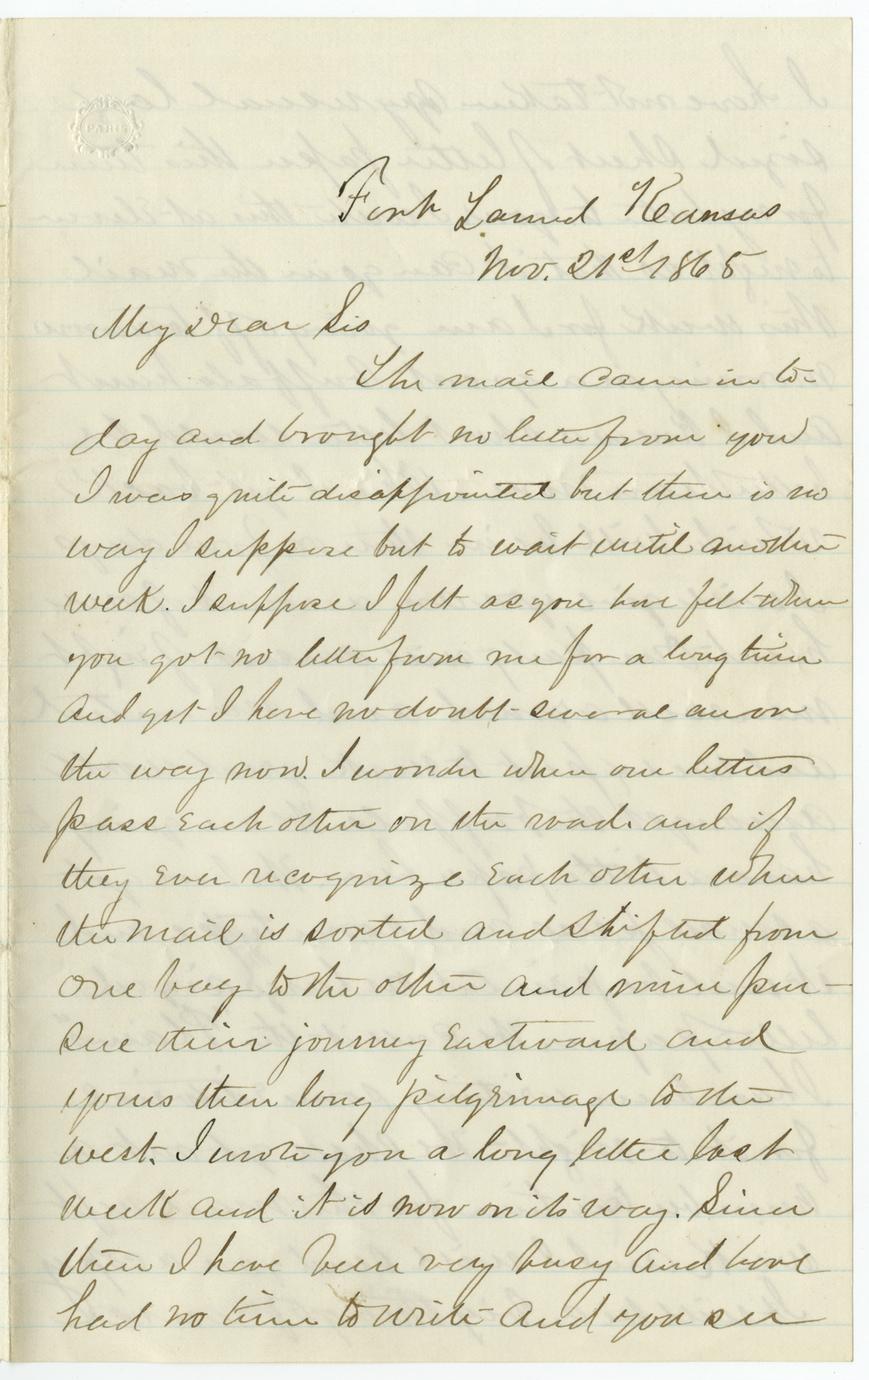 PARIS
Fort Larned Kansas
Nov. 21st 1865
My Dear Sis
The mail came in to-
day and brought no letter from you
I was quite disappointed but there is no
way I suppose but to wait until another
week. I suppose I felt as you have felt when
you got no letter from me for a long time
and yet I have no doubt several are on
the way now. I wonder when our letters
pass each other on the road and if
they ever recognize each other when
the mail is sorted and shifted from
one bag to the other and mine pur-
sue their journey Eastward and
yours their long pilgrimage to the
west. I wrote you a long letter last
week and it is now on its way. Since
then I have been very busy and have
had no time to write and you see